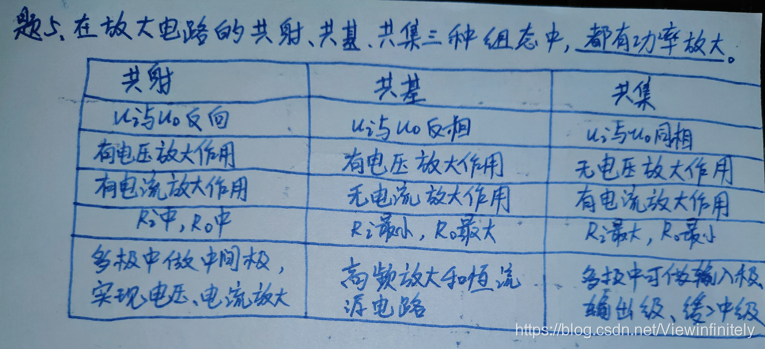 题5、在放大电路的共射、共基、共集三种组态中，都有功率放大。
共射 共基 共集
ui与uo反向 ui与uo反相 ui与uo同相
有电压放大作用 有电压放大作用 无电压放大作用
有电流放大作用 无电流放大作用 有电流放大作用
Ri中，Ro中 Ri最小，Ro最大 Ri最大，Ro最小
多极中做中间极，
实现电压、电流放大
高频放大和恒流
源电路
多极中可做输入极、
输出级、缓冲级
https://blog.csdn.net/Viewinfinitely